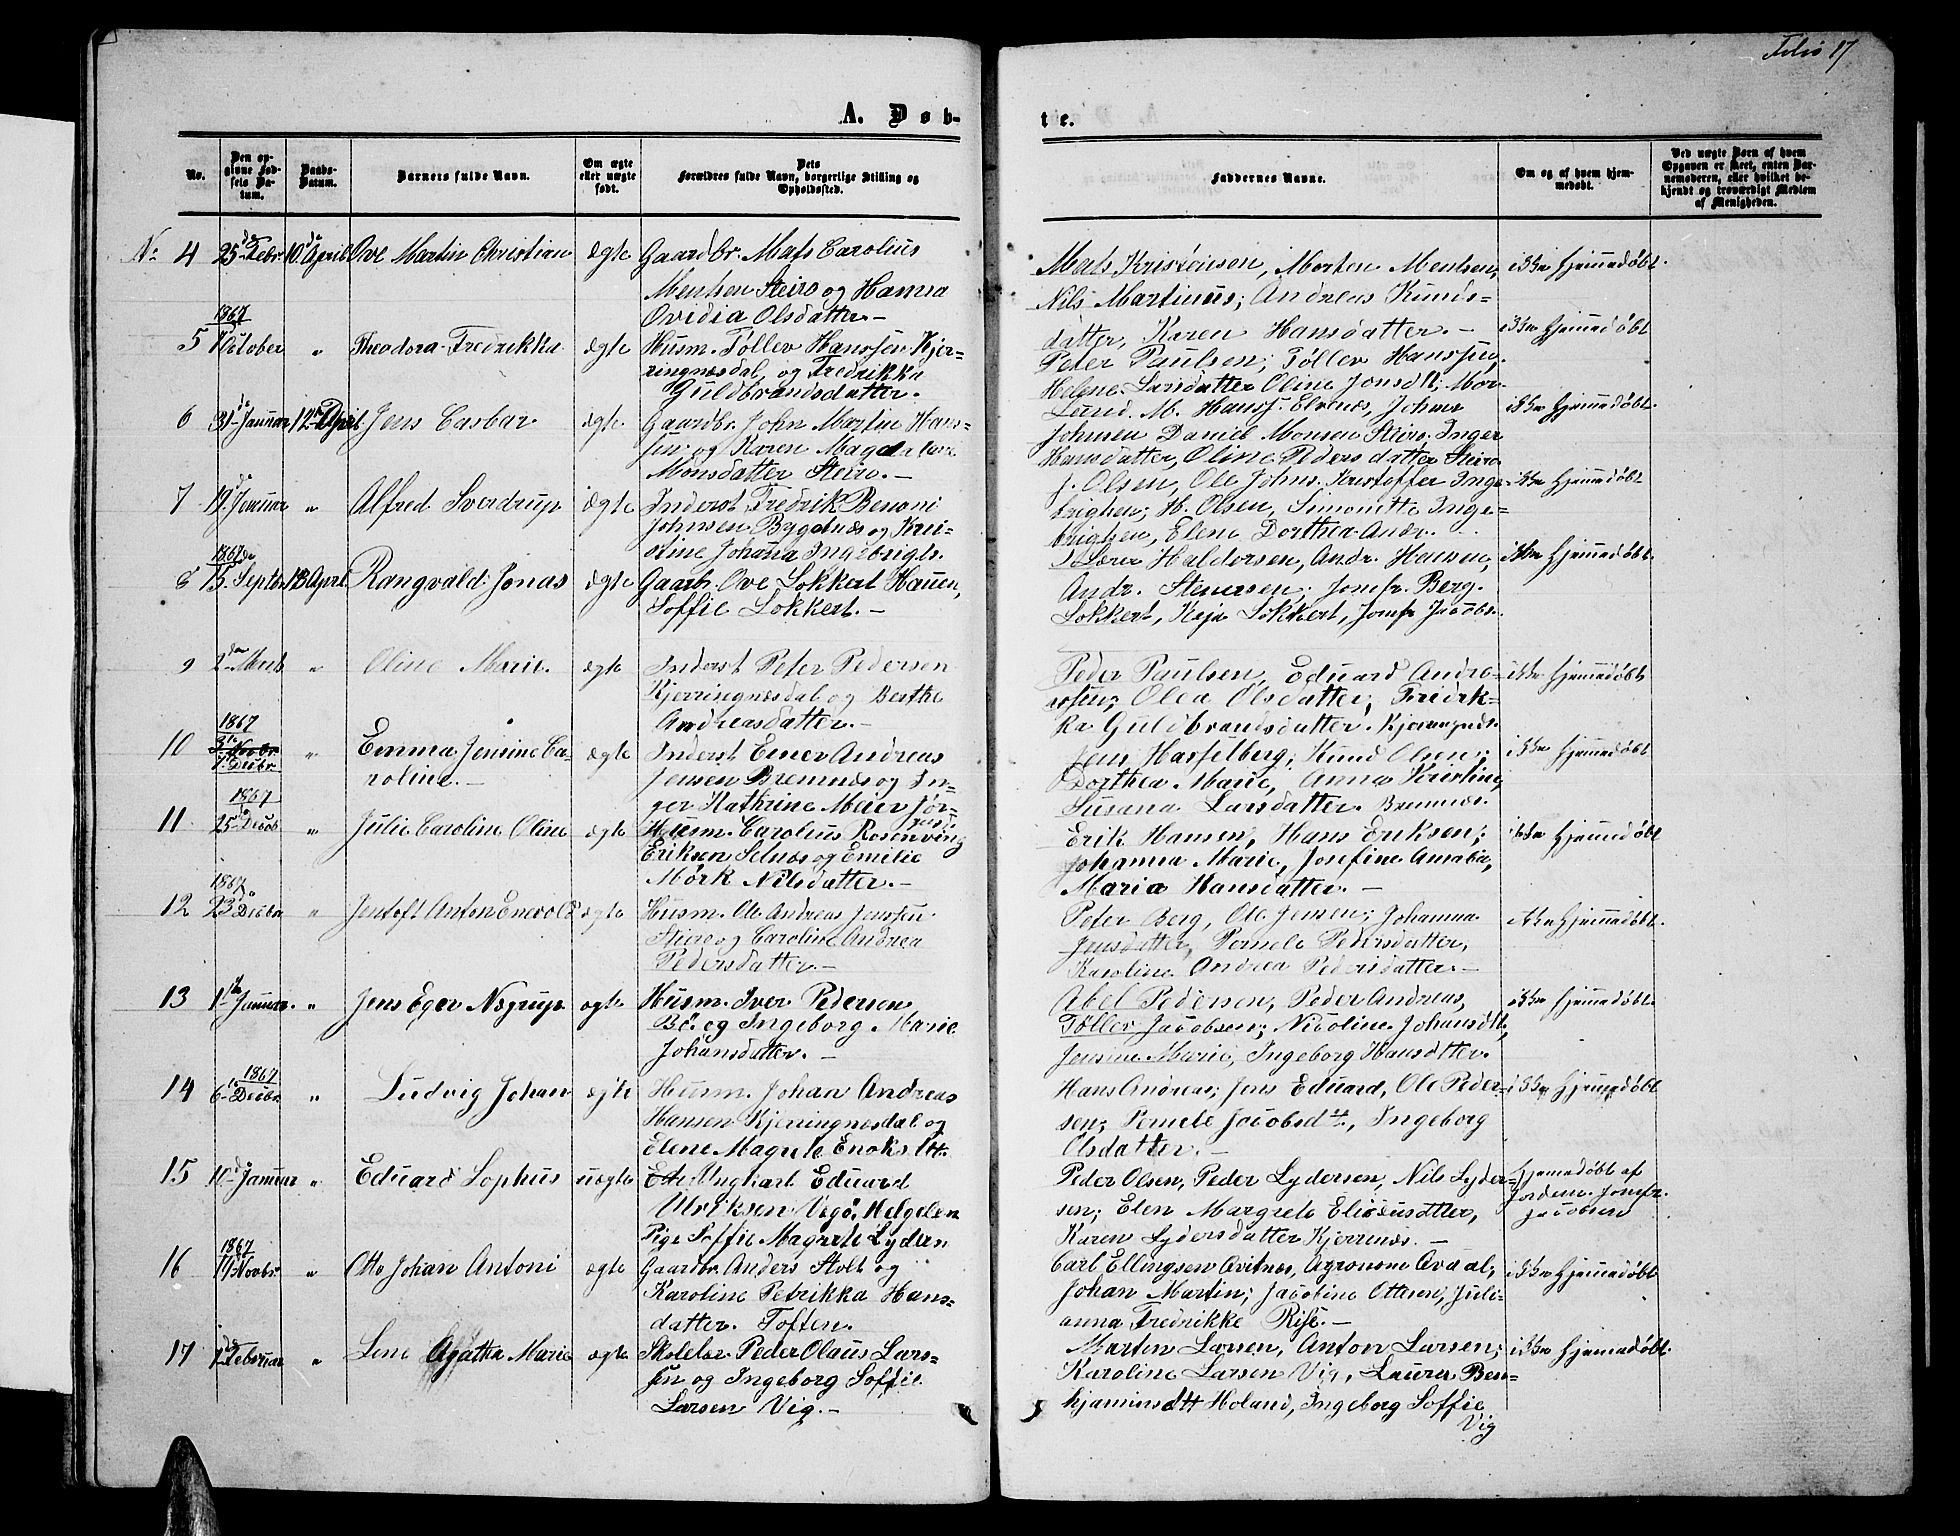 Folio 17
A. Døb-
te.
No.
Den op-
givne Fød-
sels Da-
tum.
Daabs-
Datum.
Barnets fulde Navn.
Om ægte
eller uægte
født.
Dets
Forældres fulde Navn, borgerlige Stilling og
Opholdssted.
Faddernes Navne.
Om og af hvem hjem-
medøbt.
Ved uægte Børn af hvem
Opgaven er skeet, enten Bar-
nemoderen, eller hvilket be-
kjendt og troværdigt Medlem
af Menigheden.
No 4 25de Febr. 10de April Ove Martin Christian ægte Gaardbr. Mats Carolius
Mentsen Steiro og Hanna
Ovidia Olsdatter.-
Mats Kristensen, Morten Mentsen,
Nils Martinus; Andreas Knuds-
datter, Karen Hansdatter.-
ikke Hjemmedøbt.
1867
5 1 October " Theodora Fredrikka ægte Husm. Tøllev Hanssen Kjer-
ringnæsdal, og Fredrikka
Guldbrandsdatter.
Peter Paulsen; Tøllev Hanssen,
Helene Larsdatter Oline Jonsdt,
ikke Hjemmedøbt
6 31te Januar 12te April Jens Casbar ægte Gaardbr. John Martin Hans-
sen og Karen Magdalene
Monsdatter Steiro.-
Lund. M. Hanss. Elvenæs, Johan
Johnsen Daniel Monsen Steiro, Inger
Hansdatter, Oline Pedersdatter Steiro
ikke Hjemmedøbt.
7 19de Januar " Alfred Sverdrup ægte Inderst Fredrik Benoni
Johnsen Bygdnæs og Kri-
stine Johana Ingebrigts.
J. Olsen, Ole Johns. Kristoffer Inge-
brigtsen; H. Olsen, Simonette Inge-
brigtsen, Elene Dorthea Andr.
ikke Hjemmedøbt
1867
8 15de Septbr. 13 April Rangvald Jonas ægte Gaarbr. Ove Lokkert Hauen,
Soffie Lokkert.-
Lorer Haldorsen, Andr. Hansen,
Andr. Stenersen; Jomfr. Berg.
Lokkert, Kaja Lokkert, Jomfr Jacobs.
ikke Hjemmedøbt
9 2den Marts " Oline Marie. ægte Inderst Peter Pedersen
Kjerringnæsdal og Berthe
Andreasdatter.-
Peder Paulsen, Eduard Andre-
assen; Olea Olsdatter, Fredrik-
ka Guldbrandsdatter. Kjeringnæs.
ikke Hjemmedøbt
1867
10 3te Novbr. 1 Decbr " Emma Jensine Ca-
roline.- ægte Inderst Emer Andreas
Jensen Bremnæs og In-
ger Kathrine Meier Jør-
gensd.
Jens Hasselberg, Knud Olsen;
Dorthea Marie, Anna Kristine,
Susana Larsdatter. Bremnæs.
ikke Hjemmedøbt
1867
11 25de Decbr " Julie Caroline Oline ægte Husm. Carolius Rosenving
Eriksen Selnæs og Emilie
Mørk Nilsdatter.-
Erik Hansen, Hans Eriksen;
Johanna Marie, Josefine Amalia,
Maria Hansdatter.-
ikke Hjemmedøbt
1867
12 23de Decbr " Jentoft Anton Enevold ægte Husm. Ole Andreas Jenssen
Steiro og Caroline Andrea
Pedersdatter.-
Peter Berg, Ole Jensen; Johanna
Jensdatter, Pernele Pedersdatter,
Karoline Andrea Pedersdatter.-
ikke Hjemmedøbt.
13 1ste Januar. " Jens Eger Nogrup ægte Husm. Iver Pedersen
Bø og Ingeborg Marie
Johansdatter.-
Abel Pedersen, Peder Andreas,
Tøller Jacobsen; Nicoline Johansdt,
Jensine Marie, Ingeborg Hansdtter.
ikke Hjemmedøbt.
1867
14 6te Decbr. " Ludvig Johan ægte Husm. Johan Andreas
Hansen Kjerringnæsdal og
Elene Magrete Enoksdtt
Hans Andreas; Jens Eduard, Ole Peder-
sen; Pernele Jacobsdt, Ingeborg
Olsdatter.-
ikke Hjemmedøbt
15 10de Januar " Eduard Sophus uægte Ungkarl Eduard
Ulriksen Vegø. Helgeland
Pige Soffie Magrete Lyders.
Peder Olsen, Peder Lydersen, Nils Lyder-
sen; Elen Margrete Eliseusdtter,
Karen Lydersdatter Kjerrnæs.-
Hjemedøbt af
Jordem. Jomfr.
Jacobsen
1867
16 14 Novbr. " Otto Johan Antoni ægte Gaardbr. Anders Stolt og
Karoline Petrikka Hans-
datter. Toften.
Carl Ellingsen Avitnæs, Agronom Avdal,
Johan Martin; Jacobine Ottesen, Juli-
anna Fredrikke Rise.-
ikke Hjemmedøbt
17 1ste Februar " Lene Agatha Marie ægte Skolelær. Peder Olaus Lars-
sen og Ingeborg Soffie
Larsen Vig.-
Morten Larsen, Anton Larsen;
Karoline Larsen Vig, Laurea Ben-
kjaminsdtt Holand, Ingeborg Soffie
Vig
ikke Hjemmedøbt.